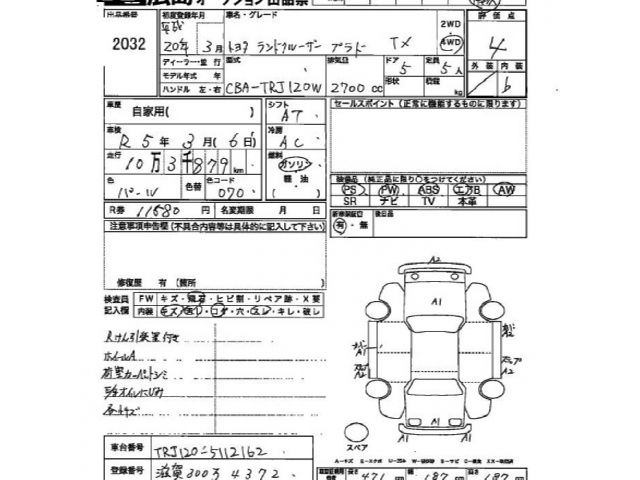 広島 オークション出品票
出品番号
2032
初度登録年月
平成
20年 3月
車名・グレード
トヨタ ランドクルーザー プラド TX
2WD
4WD
評価点
4
ディーラー・並行
モデル年式 年
ハンドル 左・右
型式
CBA-TRJ120W
排気量
2700 cc
ドア
5
形状
定員
5人
積載
kg
外装 内装
b
車歴
自家用( )
シフト
AT
セールスポイント(正常に機能するものに限ります)
車検
R 5年 3月( 6日)
冷房
AC
走行
10万3千879km
燃料
ガソリン
軽油
装備品(純正品に限り○をつけてください)
PS PW ABS エアB AW
SR ナビ TV 本革
色
パール
色替
色コード
070
R券 11580 円
名変期限 月 日
新車保証書
有・無
後日品
注意事項申告欄(不具合内容等は具体的に記入して下さい)
修復歴 有(箇所
検査員
記入欄
FW キズ・飛石・ヒビ割・リペア跡・X要
内装 キズ・汚レ・コゲ・穴・スレ・キレ・破レ
ホイールA
車台番号
TRJ120-5112162
登録番号
滋賀300 4372
A2
A1
A1
A1
A2
A2
A2
A1
A1
スペア
長さ 471 cm 幅 187 cm 高さ 187 cm